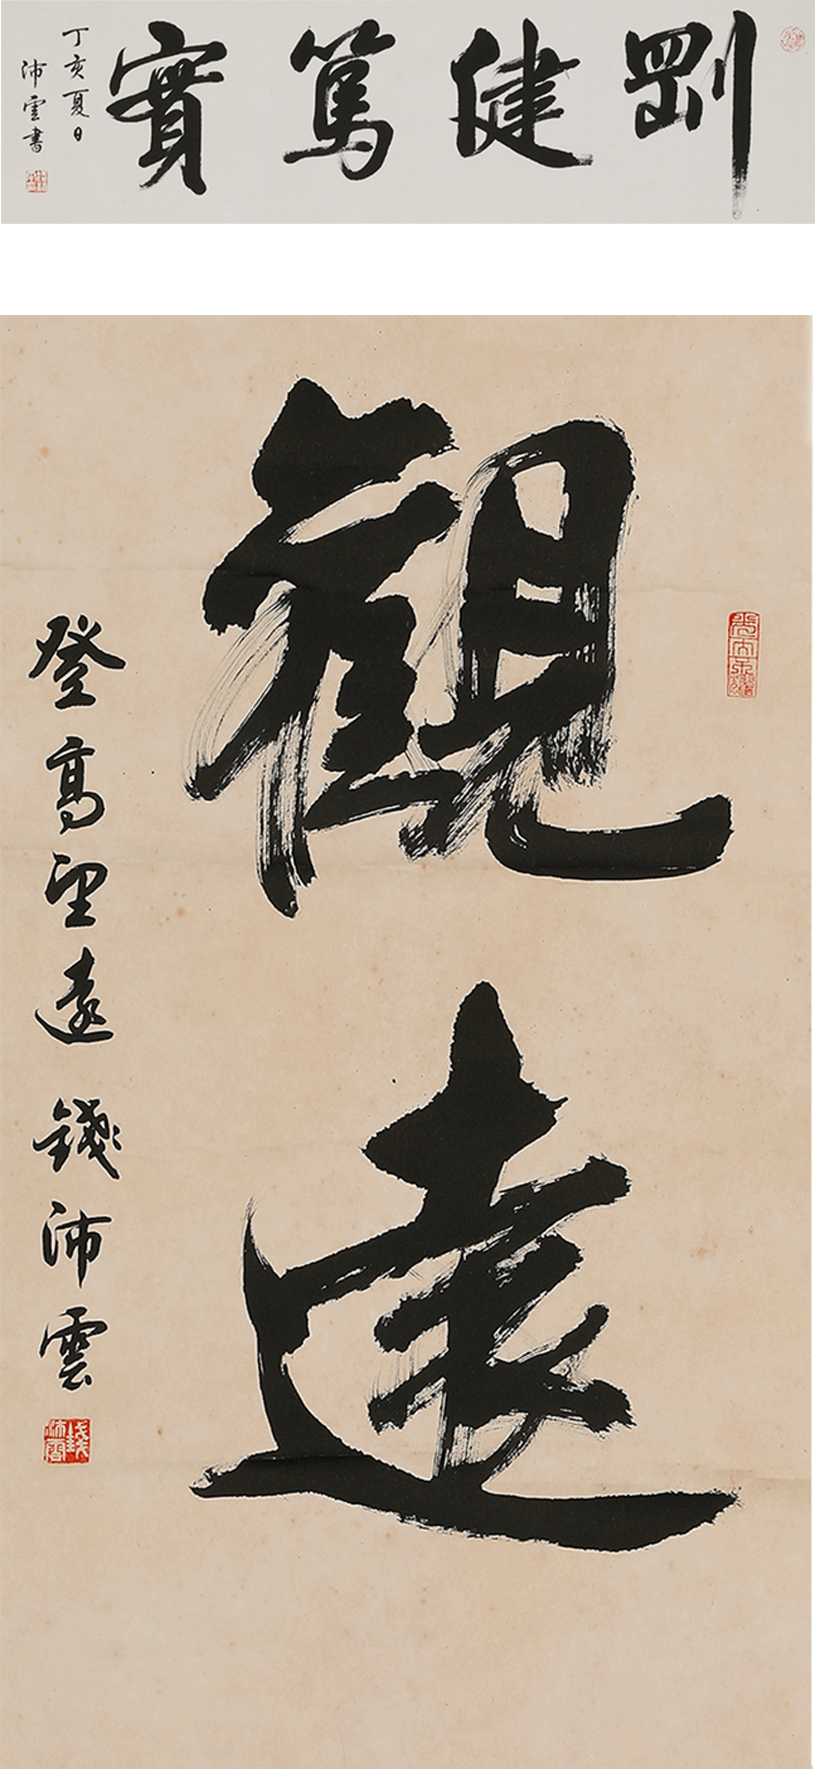 剛健篤實
丁亥夏日
沛雲書
觀遠
登高望遠 錢沛雲
錢沛雲